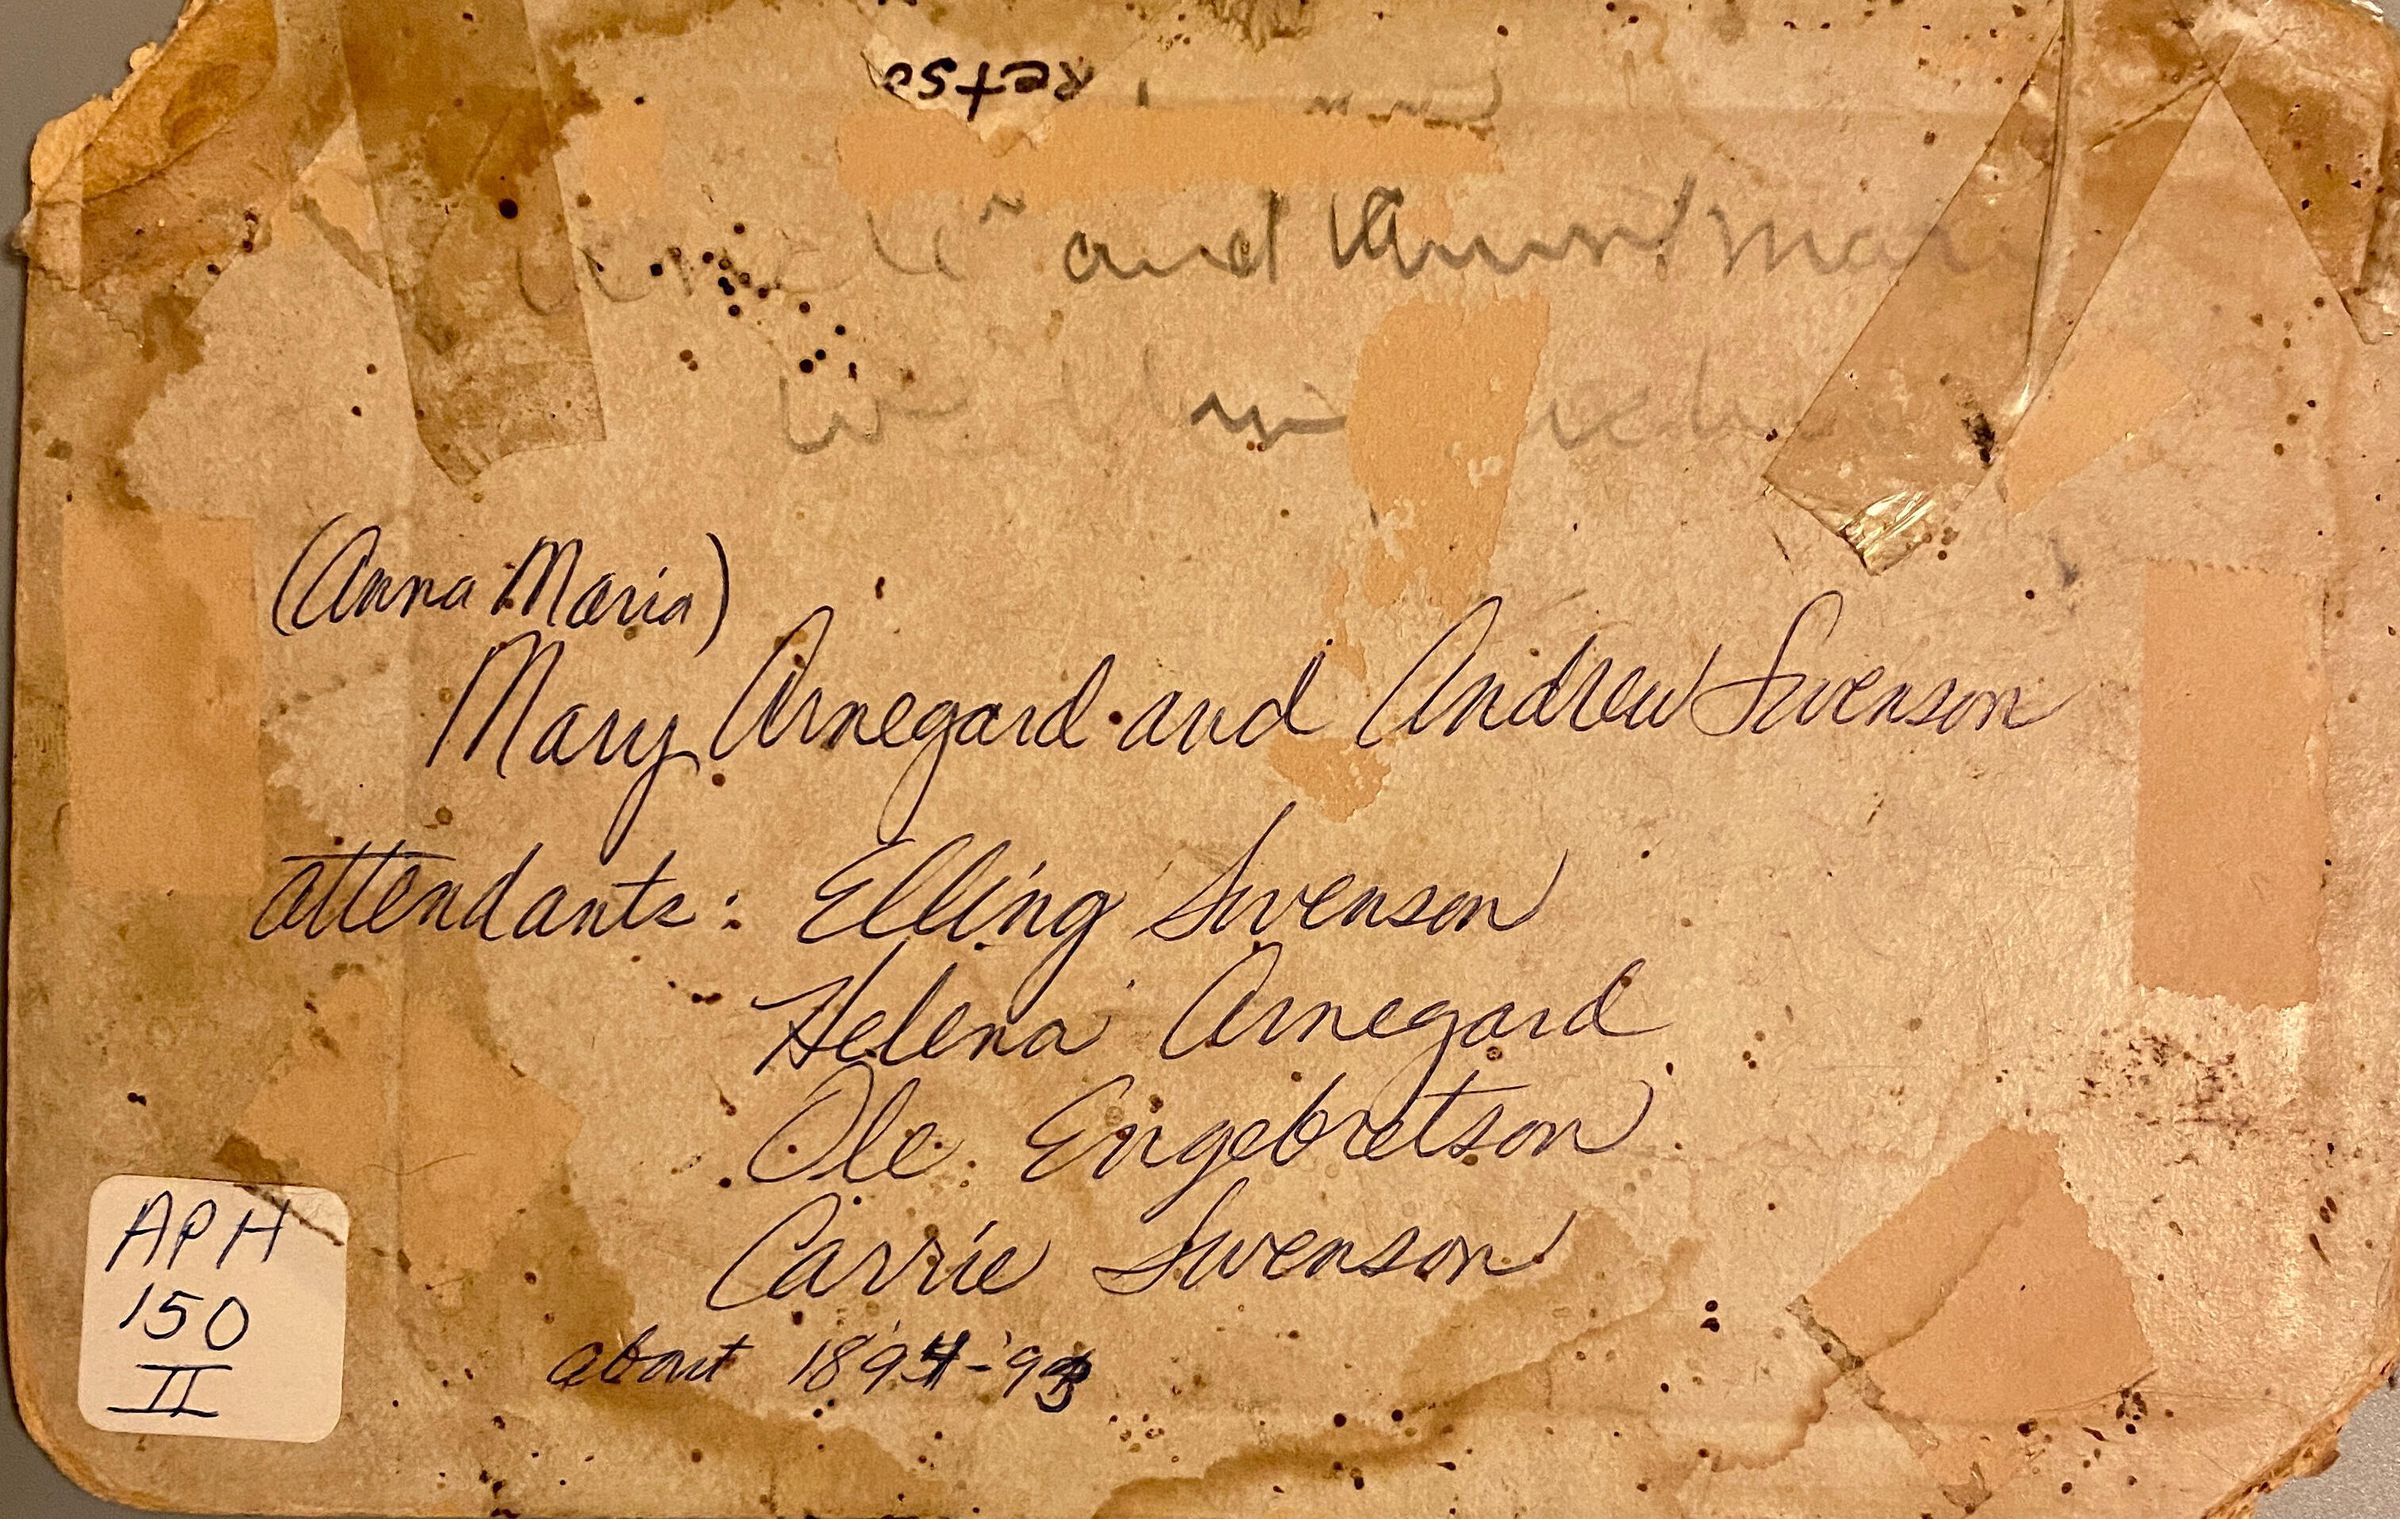 and
(Anna Maria)
Mary Arnegard and Andrew Swenson
attendants: Elling Swenson
Helena Arnegard
Ole Engebretson
Carrie Swenson
about 1894-'93
APH
150
II